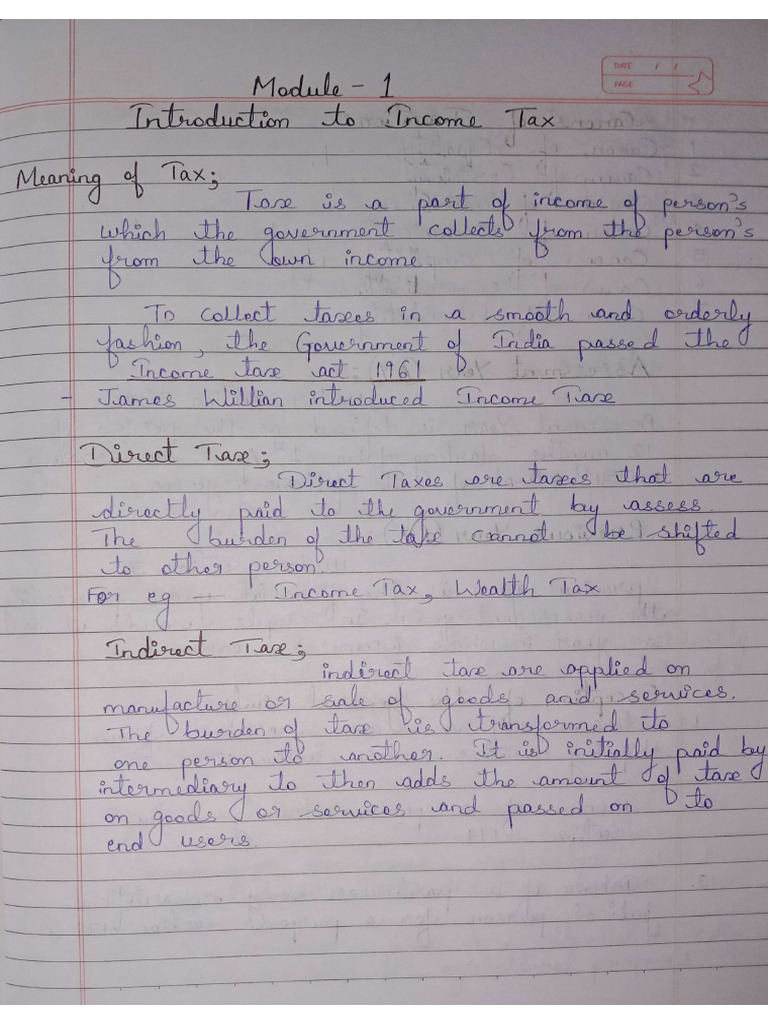 DATE / /
PAGE
Module - 1
Introduction to Income Tax
Meaning of Tax;
Taxe is a part of income of person's
which the government collects from the person's
from the own income
To collect taxes in a smooth and orderly
fashion, the Government of India passed the
Income taxe act 1961
- James Willian introduced Income Taxe
Direct Taxe;
Direct Taxes are taxes that are
directly paid to the government by assess.
The burden of the taxe cannot be shifted
to other person.
For eg — Income Tax, Wealth Tax
Indirect Taxe;
indirect taxe are applied on
manufacture or sale of goods and services.
The burden of taxe is transformed to
one person to another. It is initially paid by
intermediary to then adds the amount of taxe
on goods or services and passed on to
end users